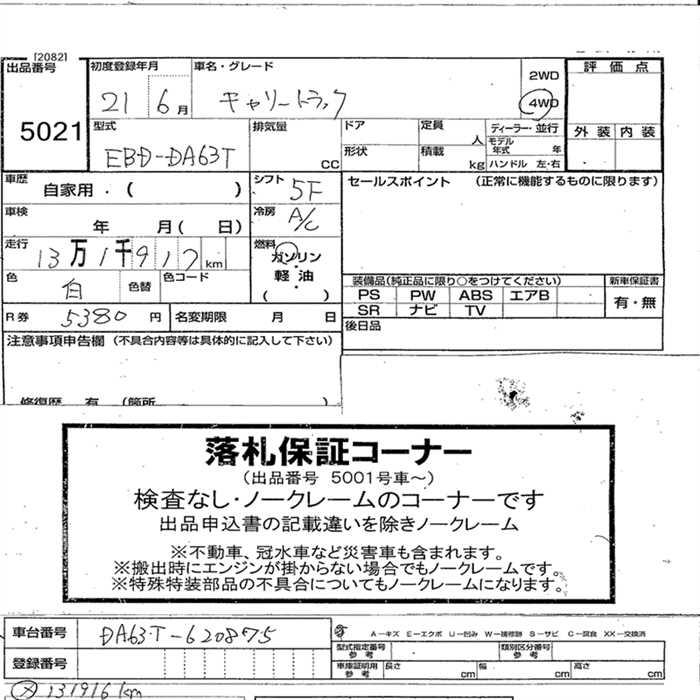 [2082]
出品番号 初度登録年月 車名・グレード 2WD 評価点
5021 21 6月 キャリートラック 4WD
型式 排気量 ドア 定員 ディーラー・並行 外装 内装
EBD-DA63T CC 形状 人 モデル年式 年
積載 kg ハンドル 左・右
車歴 自家用・( ) シフト 5F セールスポイント (正常に機能するものに限ります)
車検 年 月( 日) 冷房 A/C
走行 13万1千917km 燃料 ガソリン・軽油・( )
色 白 色替 色コード 装備品(純正品に限り○をつけてください) 新車保証書
PS PW ABS エアB 有・無
R券 5380円 名変期限 月 日 SR ナビ TV
後日品
注意事項申告欄 (不具合内容等は具体的に記入して下さい)
修復歴 有 (箇所 )
落札保証コーナー
(出品番号 5001号車~)
検査なし・ノークレームのコーナーです
出品申込書の記載違いを除きノークレーム
※不動車、冠水車など災害車も含まれます。
※搬出時にエンジンが掛からない場合でもノークレームです。
※特殊特装部品の不具合についてもノークレームになります。
車台番号 DA63T-620875 A-キズ E-エクボ U-凹み W-補修跡 S-サビ C-腐食 XX-交換済
型式指定番号 参考 類別区分番号 参考
登録番号 車庫証明用 参考 長さ cm 幅 cm 高さ cm
131916km